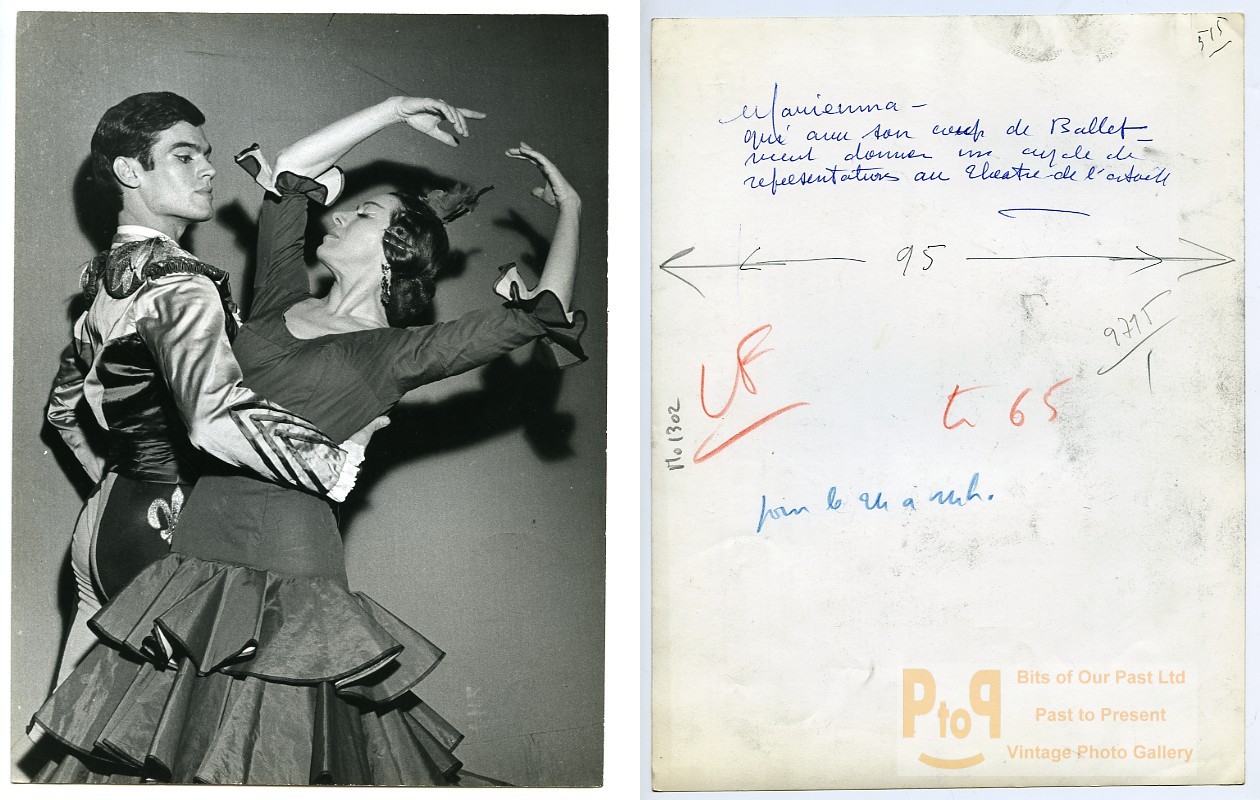 515
Mariemma -
qui avec son corps de Ballet -
vient donner un cycle de
representations au theatre de l'
95
9715
1
65
Mo1302
à
PtoP
Bits of Our Past Ltd
Past to Present
Vintage Photo Gallery